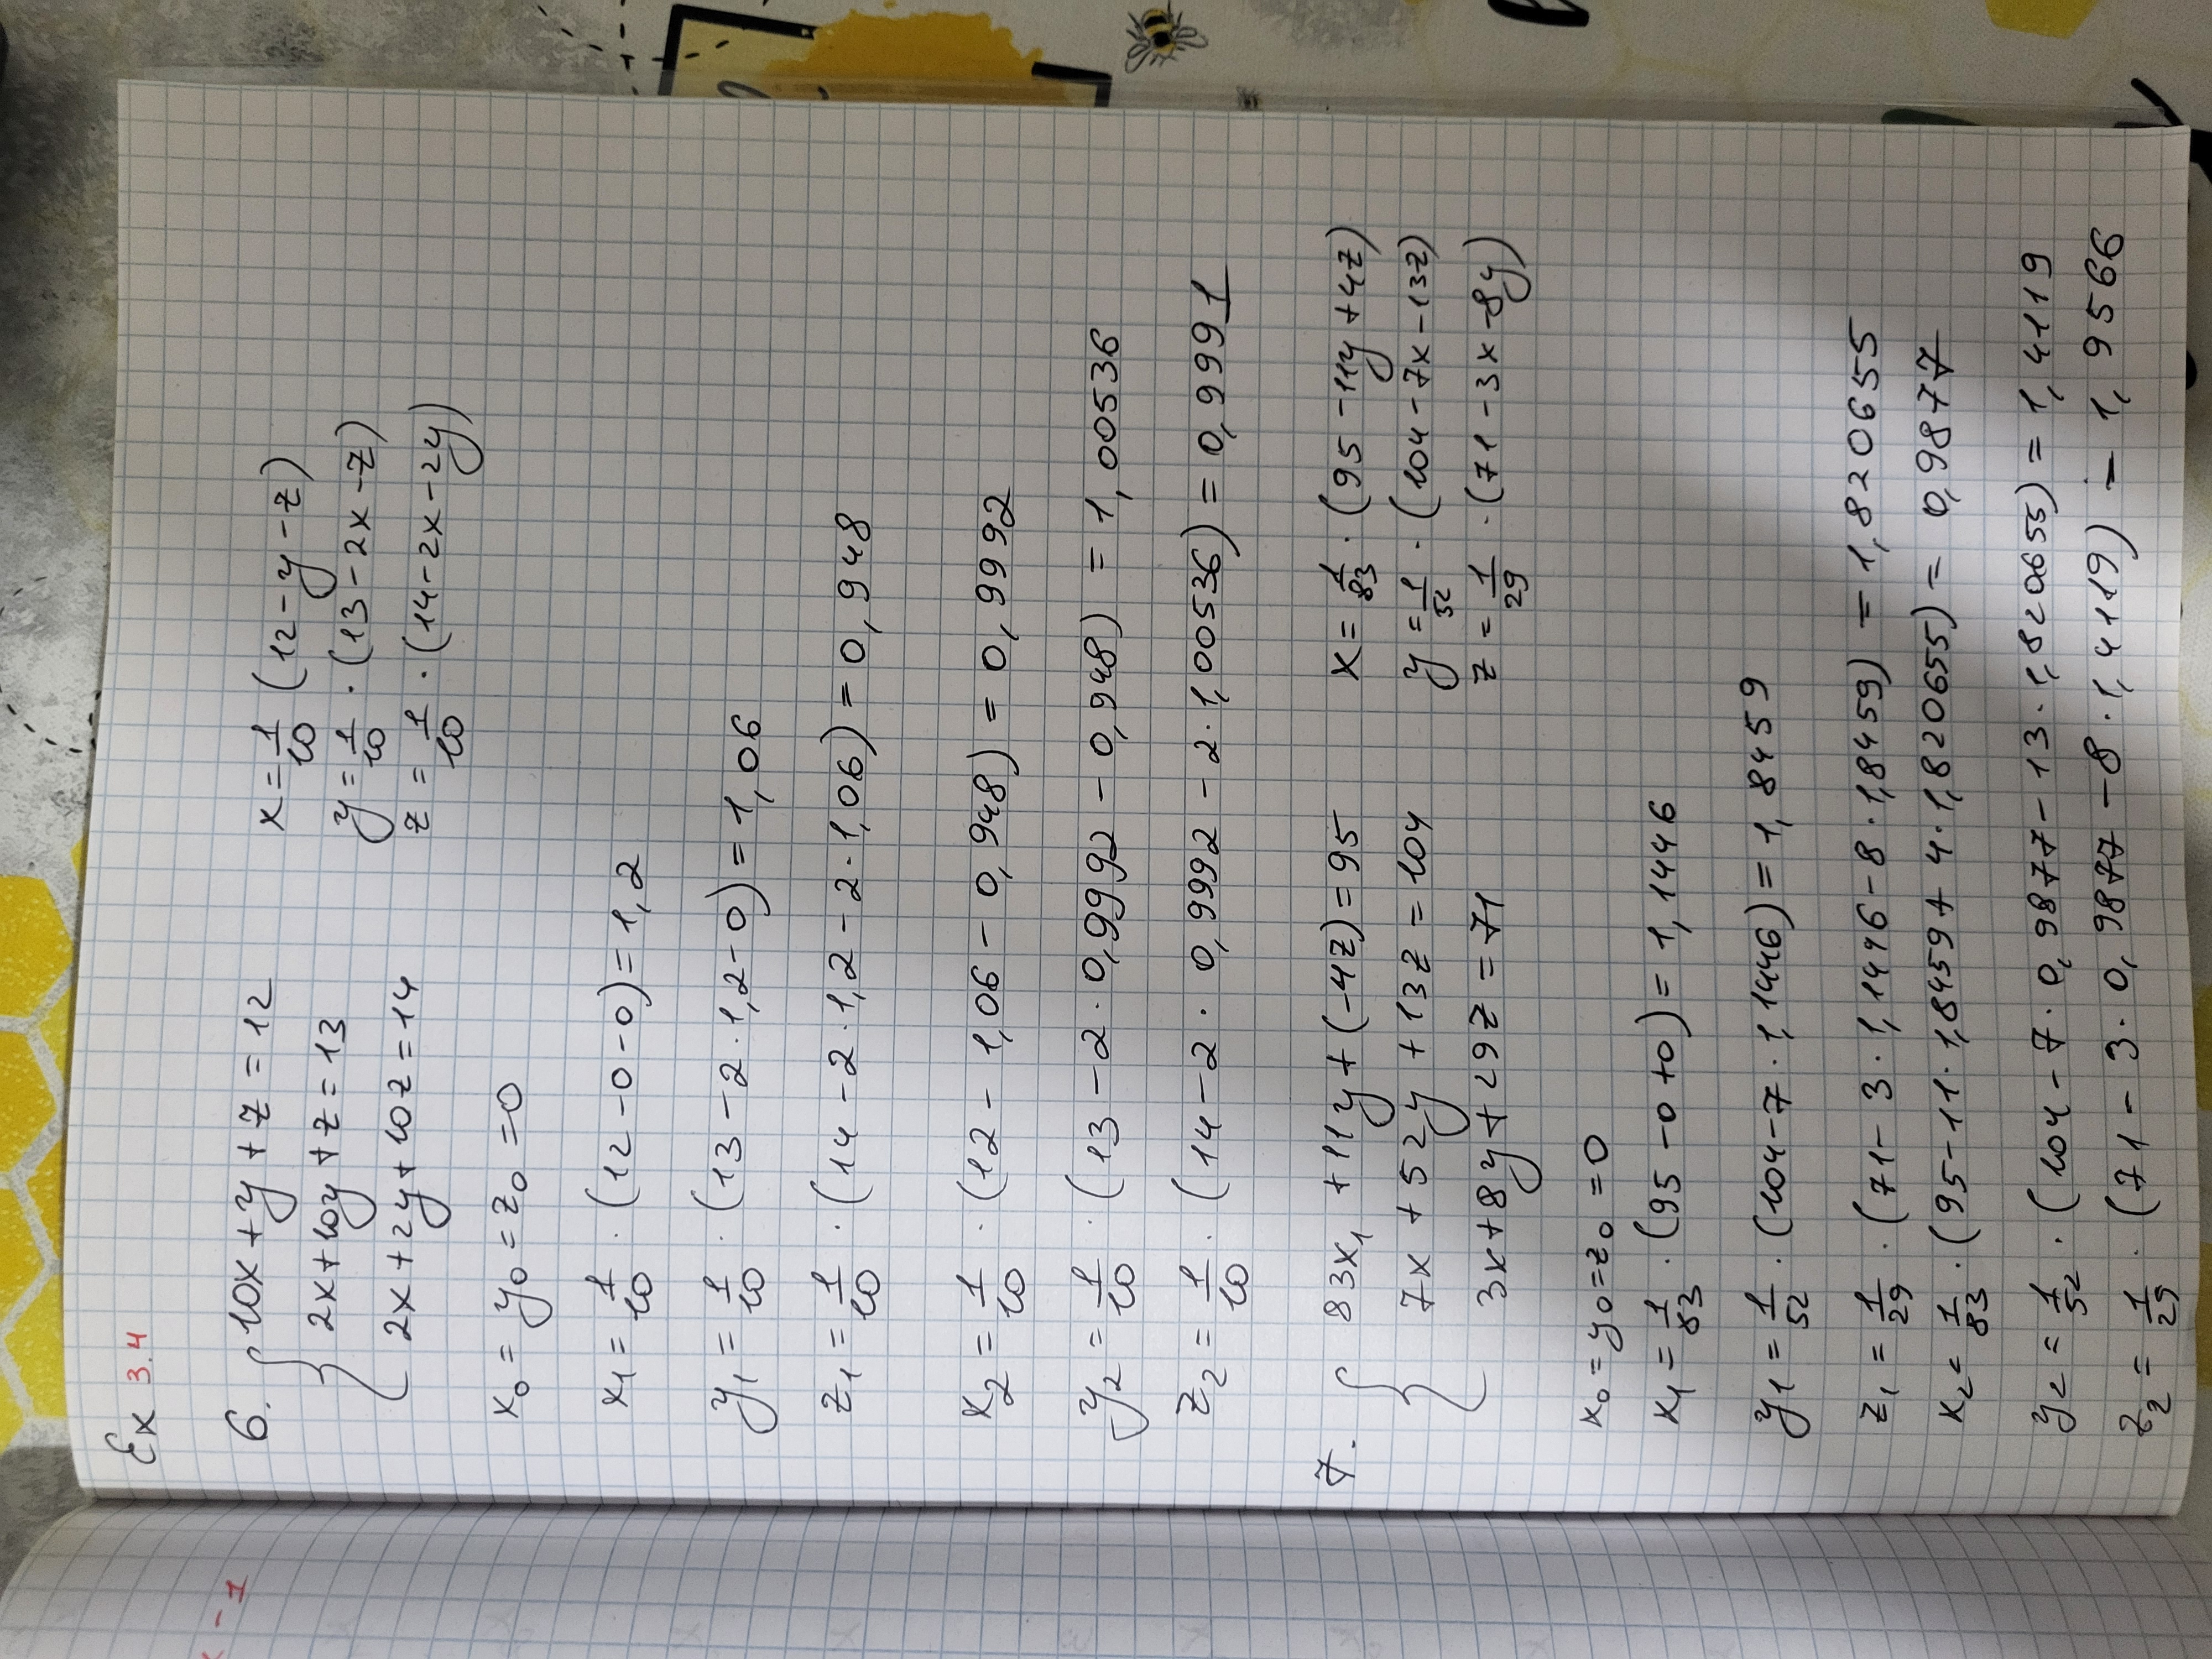 x - 1
Ex 3.4
6. { 10x + y + z = 12    x = 1/10 (12 - y - z)
2x + 10y + z = 13    y = 1/10 · (13 - 2x - z)
2x + 2y + 10z = 14    z = 1/10 · (14 - 2x - 2y)
x₀ = y₀ = z₀ = 0
x₁ = 1/10 · (12 - 0 - 0) = 1,2
y₁ = 1/10 · (13 - 2 · 1,2 - 0) = 1,06
z₁ = 1/10 · (14 - 2 · 1,2 - 2 · 1,06) = 0,948
x₂ = 1/10 · (12 - 1,06 - 0,948) = 0,9992
y₂ = 1/10 · (13 - 2 · 0,9992 - 0,948) = 1,00536
z₂ = 1/10 · (14 - 2 · 0,9992 - 2 · 1,00536) = 0,9991
7. { 83x₁ + 11y + (-4z) = 95    x = 1/83 · (95 - 11y + 4z)
7x + 52y + 13z = 104    y = 1/52 · (104 - 7x - 13z)
3x + 8y + 29z = 71    z = 1/29 · (71 - 3x - 8y)
x₀ = y₀ = z₀ = 0
x₁ = 1/83 · (95 - 0 + 0) = 1,1446
y₁ = 1/52 · (104 - 7 · 1,1446) = 1,8459
z₁ = 1/29 · (71 - 3 · 1,1446 - 8 · 1,8459) = 1,820655
x₂ = 1/83 · (95 - 11 · 1,8459 + 4 · 1,820655) = 0,9877
y₂ = 1/52 · (104 - 7 · 0,9877 - 13 · 1,820655) = 1,4119
z₂ = 1/29 · (71 - 3 · 0,9877 - 8 · 1,4119) = 1,9566